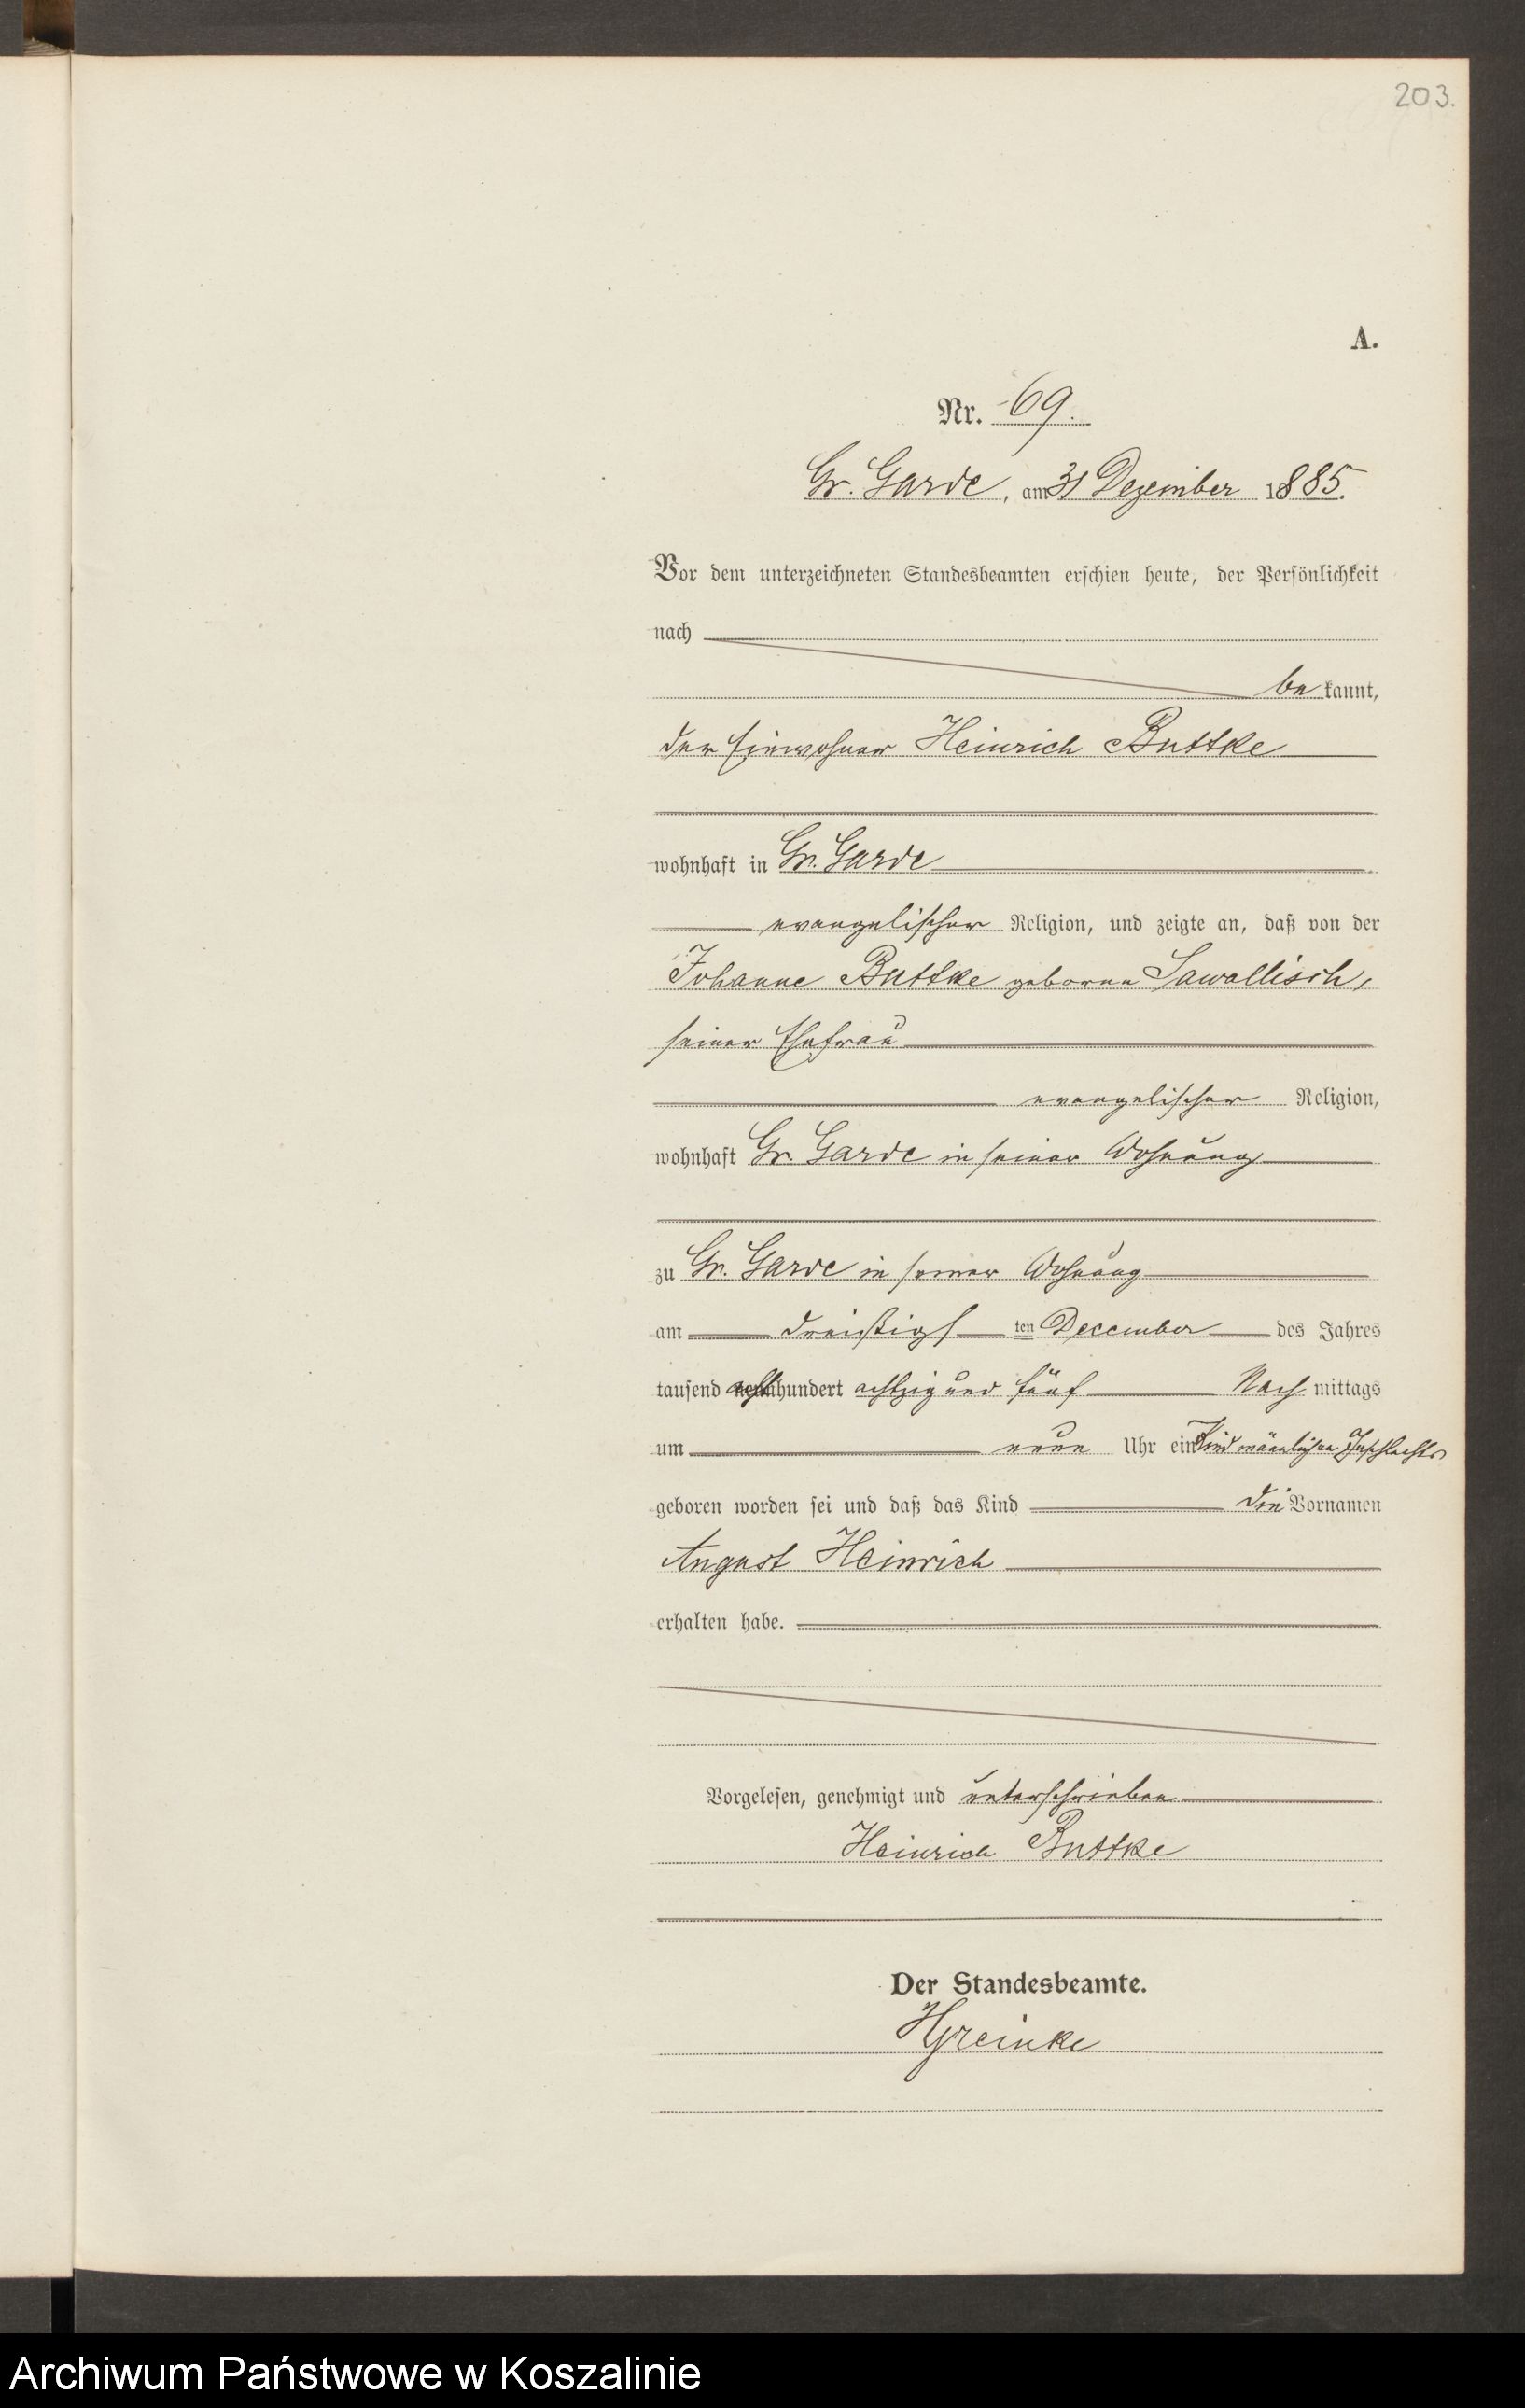 203.
A.
Nr. 69.
Gr. Garde, am 31 Dezember 1885.
Vor dem unterzeichneten Standesbeamten erschien heute, der Persönlichkeit
nach
be kannt,
der Einwohner Heinrich Buttke
wohnhaft in Gr. Garde
evangelischer Religion, und zeigte an, daß von der
Johanne Buttke geborne Sawallisch,
seiner Ehefrau
evangelischer Religion,
wohnhaft Gr. Garde in seiner Wohnung
zu Gr. Garde in seiner Wohnung
am dreißigst ten December des Jahres
tausend acht hundert achtzig und fünf Nach mittags
um neun Uhr ein Kind männlichen Geschlechts
geboren worden sei und daß das Kind die Vornamen
August Heinrich
erhalten habe.
Vorgelesen, genehmigt und unterschrieben
Heinrich Buttke
Der Standesbeamte.
HGreinke
Archiwum Państwowe w Koszalinie